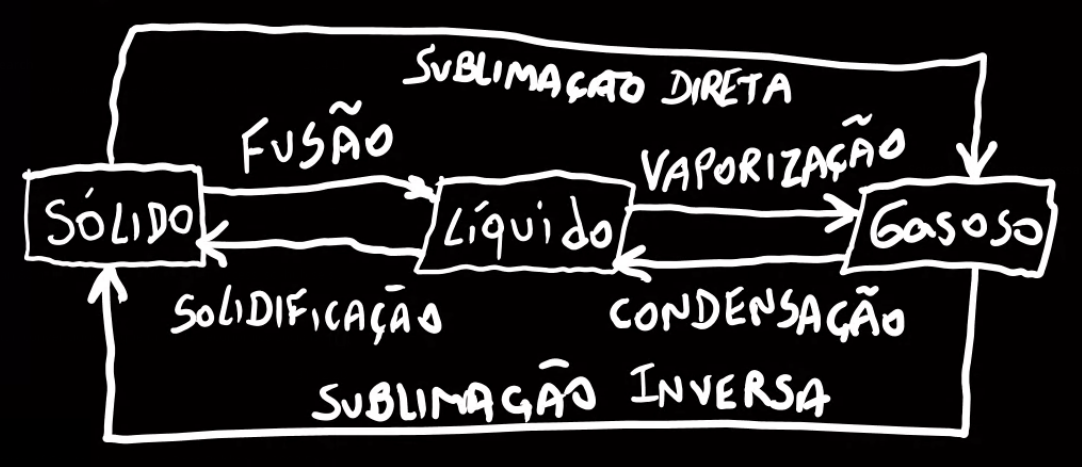 SUBLIMAÇÃO DIRETA
FUSÃO
VAPORIZAÇÃO
SÓLIDO
Líquido
Gasoso
SOLIDIFICAÇÃO
CONDENSAÇÃO
SUBLIMAÇÃO INVERSA